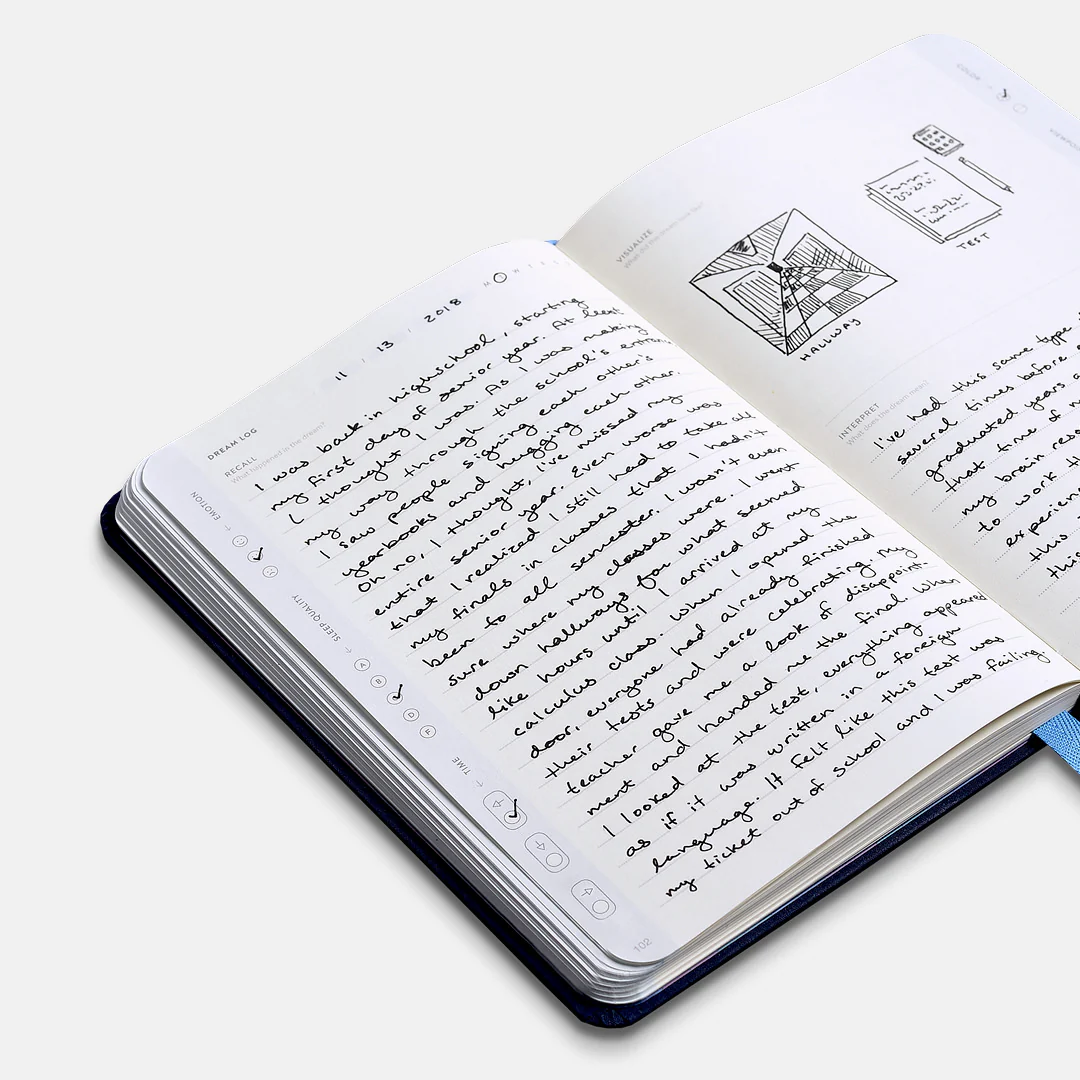 11 / 13 / 2018
M T W T F S
DREAM LOG
RECALL
What happened in the dream?
I was back in highschool, starting
my first day of senior year. At least
I thought I was. As I was making
my way through the school's
I saw people signing each other's
yearbooks and hugging each other.
Oh no, I thought, I've missed my
entire senior year. Even worse was
that I realized I still had to take all
my finals in classes that I hadn't
been to all semester. I wasn't even
sure where my classes were. I went
down hallways for what seemed
like hours until I arrived at my
calculus class. When I opened the
door, everyone had already finished
their tests and were celebrating. My
teacher gave me a look of disappoint-
ment and handed me the final. When
I looked at the test, everything appeared
as if it was written in a foreign
language. It felt like this test was
my ticket out of school and I was failing.
EMOTION
SLEEP QUALITY
A
B
D
F
TIME
102
VISUALIZE
HALLWAY
TEST
INTERPRET
What does the dream mean?
I've had this same type
several times before
graduated years
that time of
my brain
to work
this